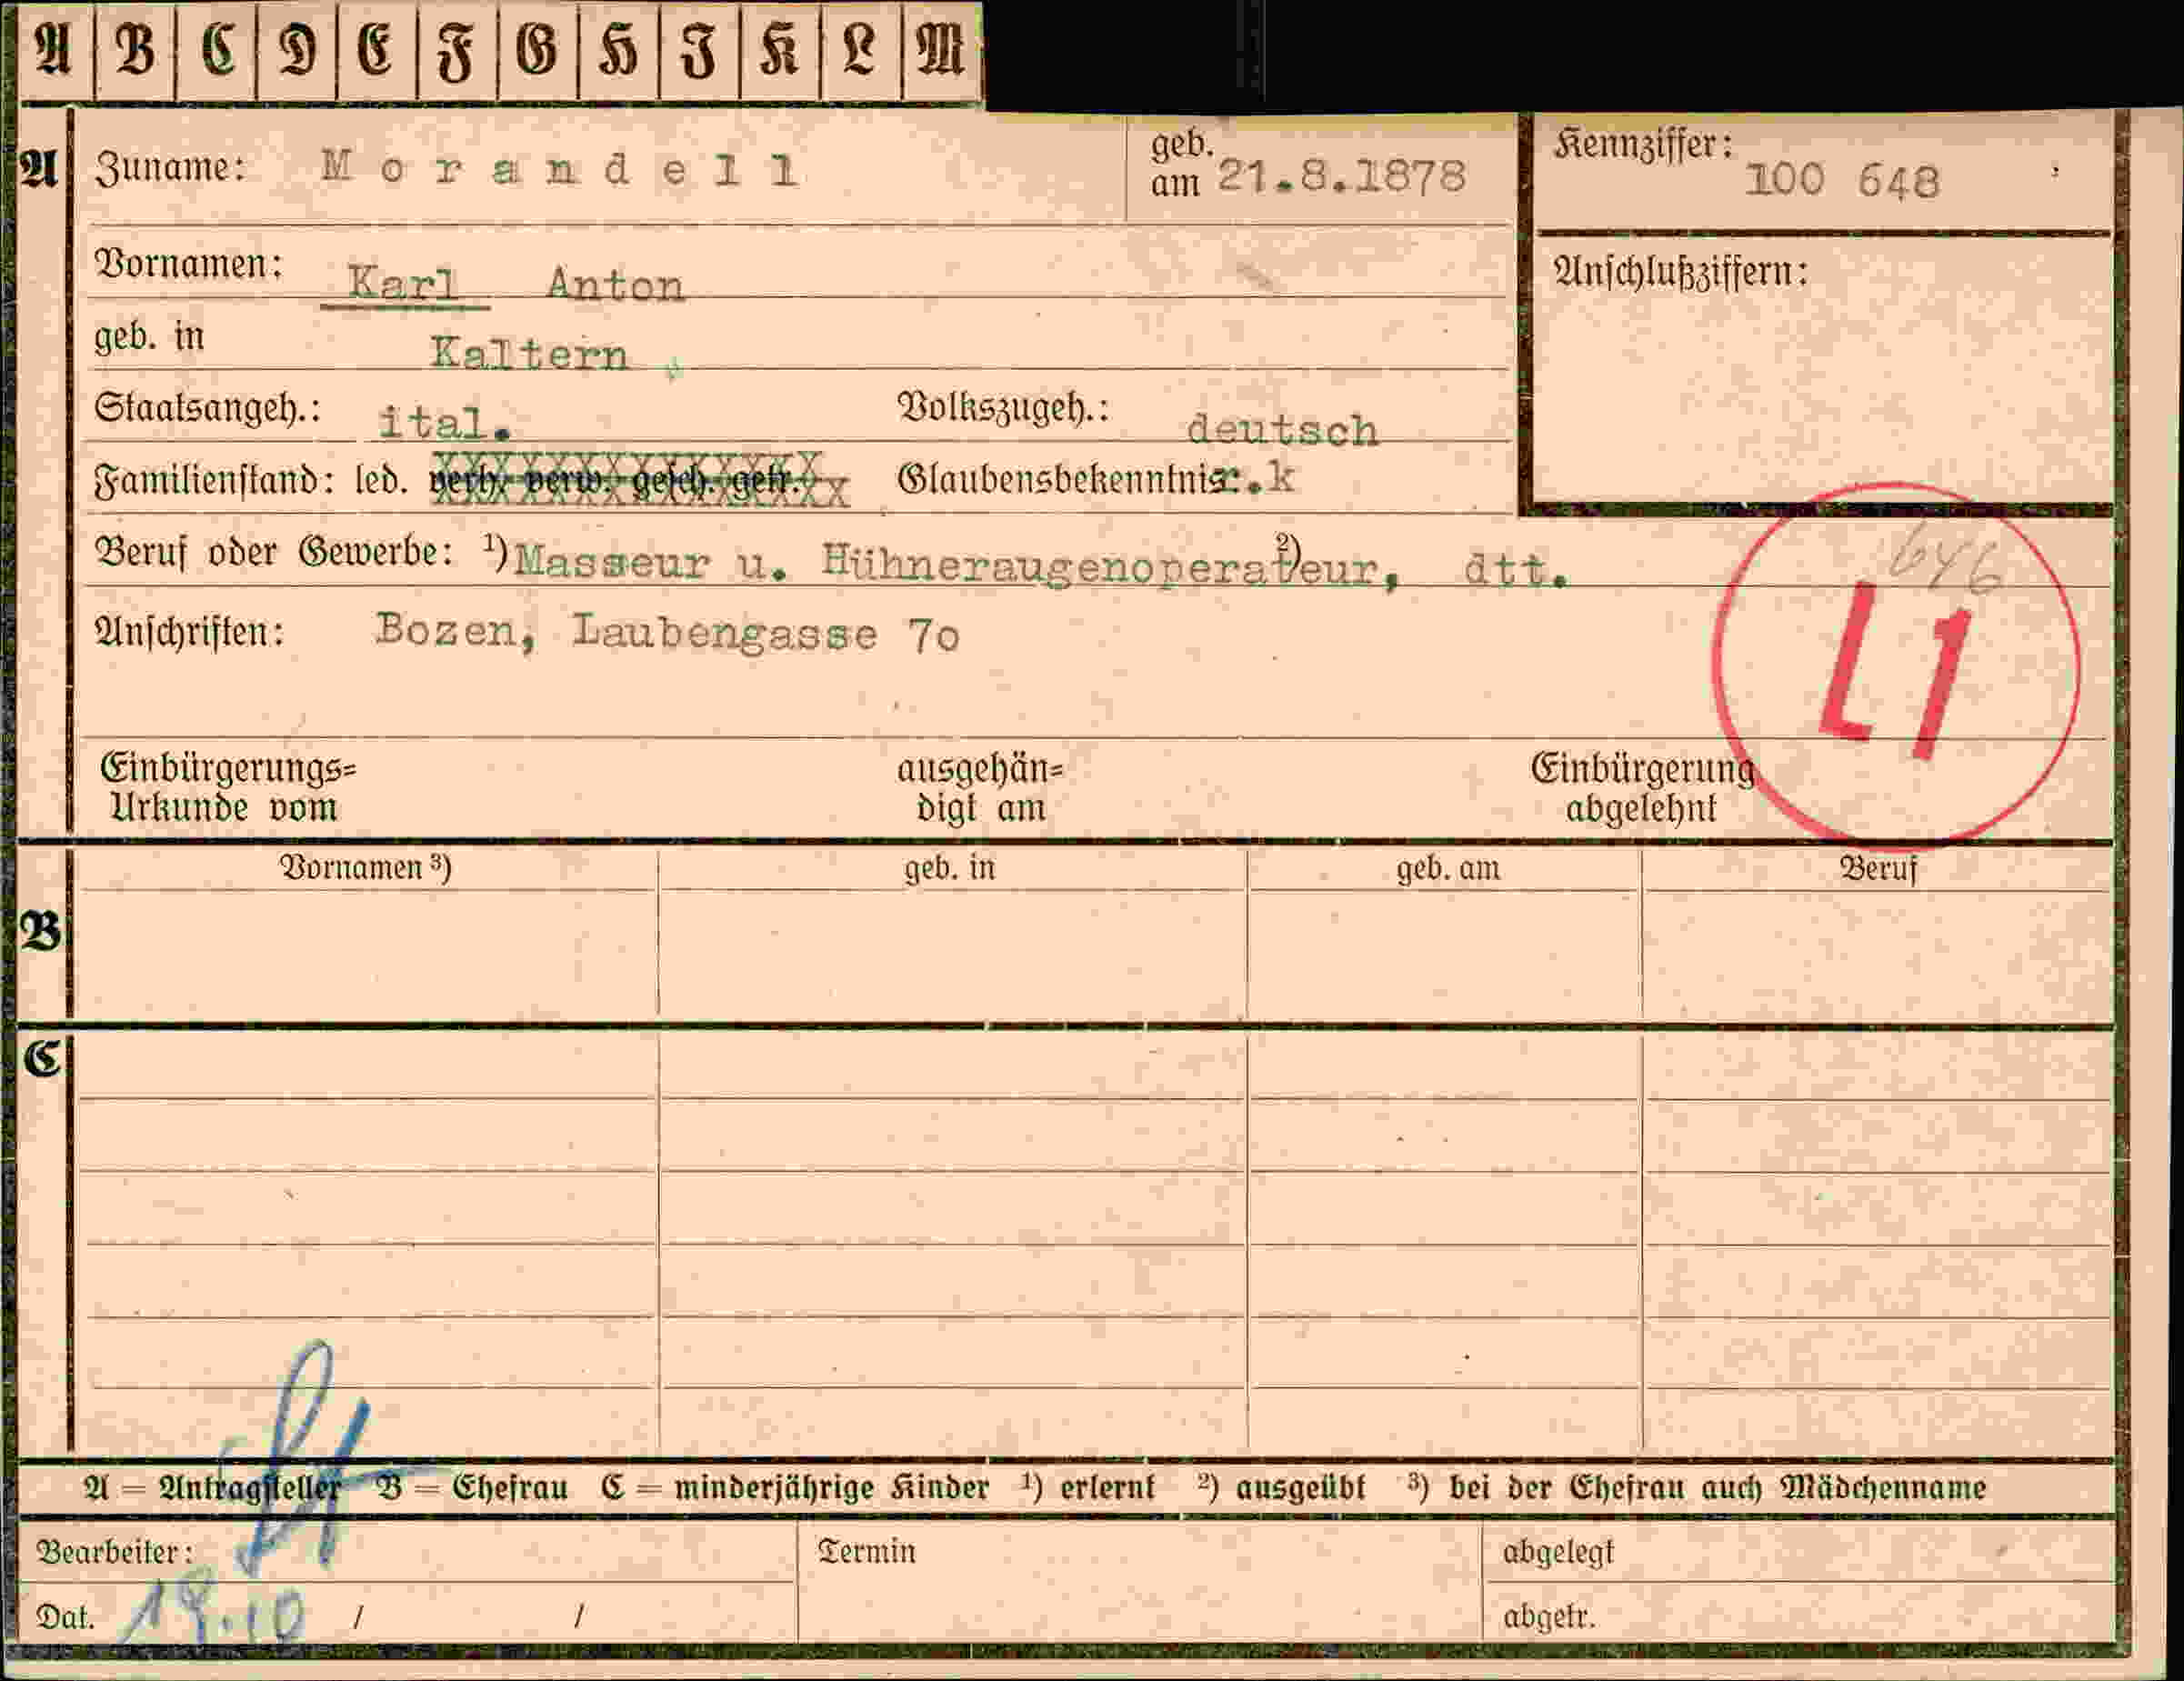 A B C D E F G H I K L M
A Zuname: Morandell geb. am 21.8.1878 Kennziffer: 100 648
Vornamen: Karl Anton Anschlußziffern:
geb. in Kaltern
Staatsangeh.: ital. Volkszugeh.: deutsch
Familienstand: led. verh. verw. gesch. getr. Glaubensbekenntnis: r.k
Beruf oder Gewerbe: ¹) Masseur u. Hühneraugenoperateur, ²) dtt.
646
L1
Anschriften: Bozen, Laubengasse 7o
Einbürgerungs= ausgehän= Einbürgerung
Urkunde vom digt am abgelehnt
Vornamen ³) geb. in geb. am Beruf
B
C
A = Antragsteller B = Ehefrau C = minderjährige Kinder ¹) erlernt ²) ausgeübt ³) bei der Ehefrau auch Mädchenname
Bearbeiter: Termin abgelegt
Dat. 18.10 / / abgetr.